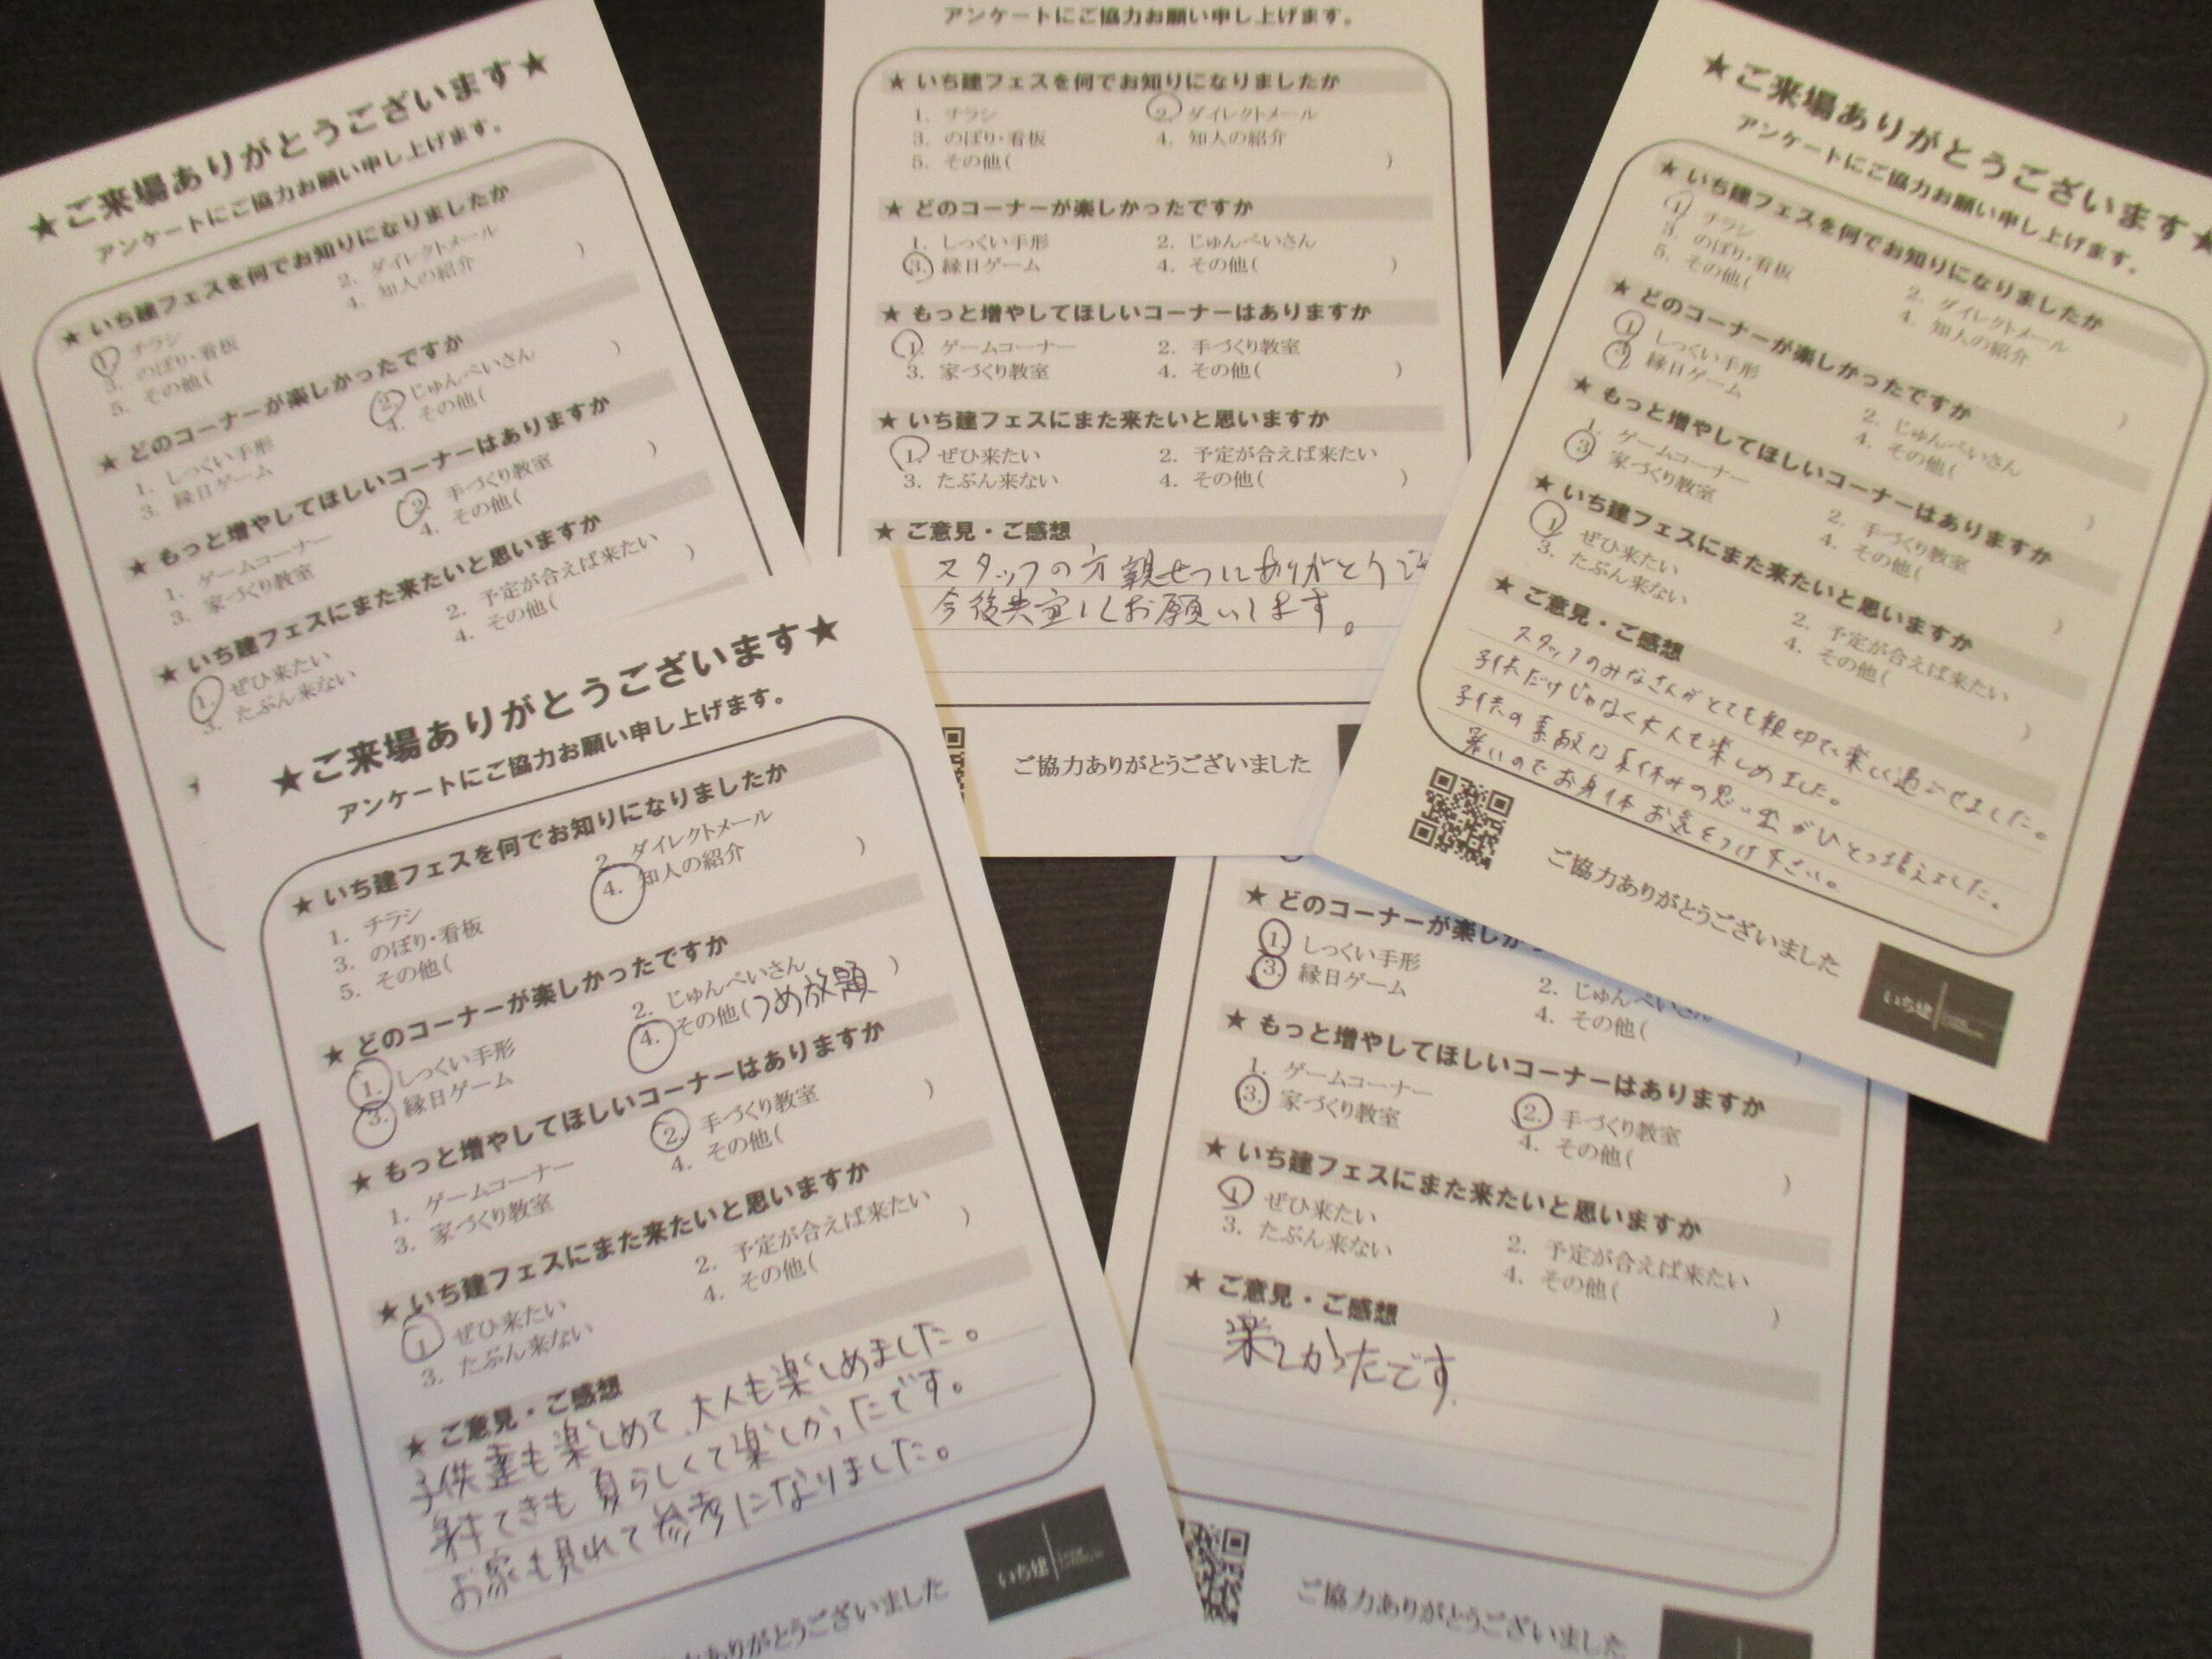 ★ご来場ありがとうございます★
アンケートにご協力お願い申し上げます。
★ いち建フェスを何でお知りになりましたか
1. チラシ
2. ダイレクトメール
3. のぼり・看板
4. 知人の紹介
5. その他( )
★ どのコーナーが楽しかったですか
1. しっくい手形
2. じゅんぺいさん
3. 縁日ゲーム
4. その他( )
★ もっと増やしてほしいコーナーはありますか
1. ゲームコーナー
2. 手づくり教室
3. 家づくり教室
4. その他( )
★ いち建フェスにまた来たいと思いますか
1. ぜひ来たい
2. 予定が合えば来たい
3. たぶん来ない
4. その他( )
アンケートにご協力お願い申し上げます。
★ いち建フェスを何でお知りになりましたか
1. チラシ
2. ダイレクトメール
3. のぼり・看板
4. 知人の紹介
5. その他( )
★ どのコーナーが楽しかったですか
1. しっくい手形
2. じゅんぺいさん
3. 縁日ゲーム
4. その他( )
★ もっと増やしてほしいコーナーはありますか
1. ゲームコーナー
2. 手づくり教室
3. 家づくり教室
4. その他( )
★ いち建フェスにまた来たいと思いますか
1. ぜひ来たい
2. 予定が合えば来たい
3. たぶん来ない
4. その他( )
★ ご意見・ご感想
スタッフの方親せつにありがとうご
今後共宜しくお願いします。
ご協力ありがとうございました
★ご来場ありがとうございます★
アンケートにご協力お願い申し上げます。
★ いち建フェスを何でお知りになりましたか
1. チラシ
2. ダイレクトメール
3. のぼり・看板
4. 知人の紹介
5. その他( )
★ どのコーナーが楽しかったですか
1. しっくい手形
2. じゅんぺいさん
3. 縁日ゲーム
4. その他( )
★ もっと増やしてほしいコーナーはありますか
1. ゲームコーナー
2. 手づくり教室
3. 家づくり教室
4. その他( )
★ いち建フェスにまた来たいと思いますか
1. ぜひ来たい
2. 予定が合えば来たい
3. たぶん来ない
4. その他( )
★ ご意見・ご感想
スタッフのみなさんがとても親切で楽しく過ごせました。
子供だけじゃなく大人も楽しめました。
子供の素敵な夏休みの思い出がひとつ増えました。
暑いのでお身体お気をつけ下さい。
ご協力ありがとうございました
いち建
★ご来場ありがとうございます★
アンケートにご協力お願い申し上げます。
★ いち建フェスを何でお知りになりましたか
1. チラシ
2. ダイレクトメール
3. のぼり・看板
4. 知人の紹介
5. その他( )
★ どのコーナーが楽しかったですか
1. しっくい手形
2. じゅんぺいさん
3. 縁日ゲーム
4. その他(つめ放題)
★ もっと増やしてほしいコーナーはありますか
1. ゲームコーナー
2. 手づくり教室
3. 家づくり教室
4. その他( )
★ いち建フェスにまた来たいと思いますか
1. ぜひ来たい
2. 予定が合えば来たい
3. たぶん来ない
4. その他( )
★ ご意見・ご感想
子供達も楽しめて、大人も楽しめました。
射てきも 夏らしくて楽しかったです。
お家も見れて参考になりました。
ありがとうございました
いち建
★ どのコーナーが楽しかっ
1. しっくい手形
2. じゅんぺいさん
3. 縁日ゲーム
4. その他( )
★ もっと増やしてほしいコーナーはありますか
1. ゲームコーナー
2. 手づくり教室
3. 家づくり教室
4. その他( )
★ いち建フェスにまた来たいと思いますか
1. ぜひ来たい
2. 予定が合えば来たい
3. たぶん来ない
4. その他( )
★ ご意見・ご感想
楽しかったです
ご協力ありがとうございました